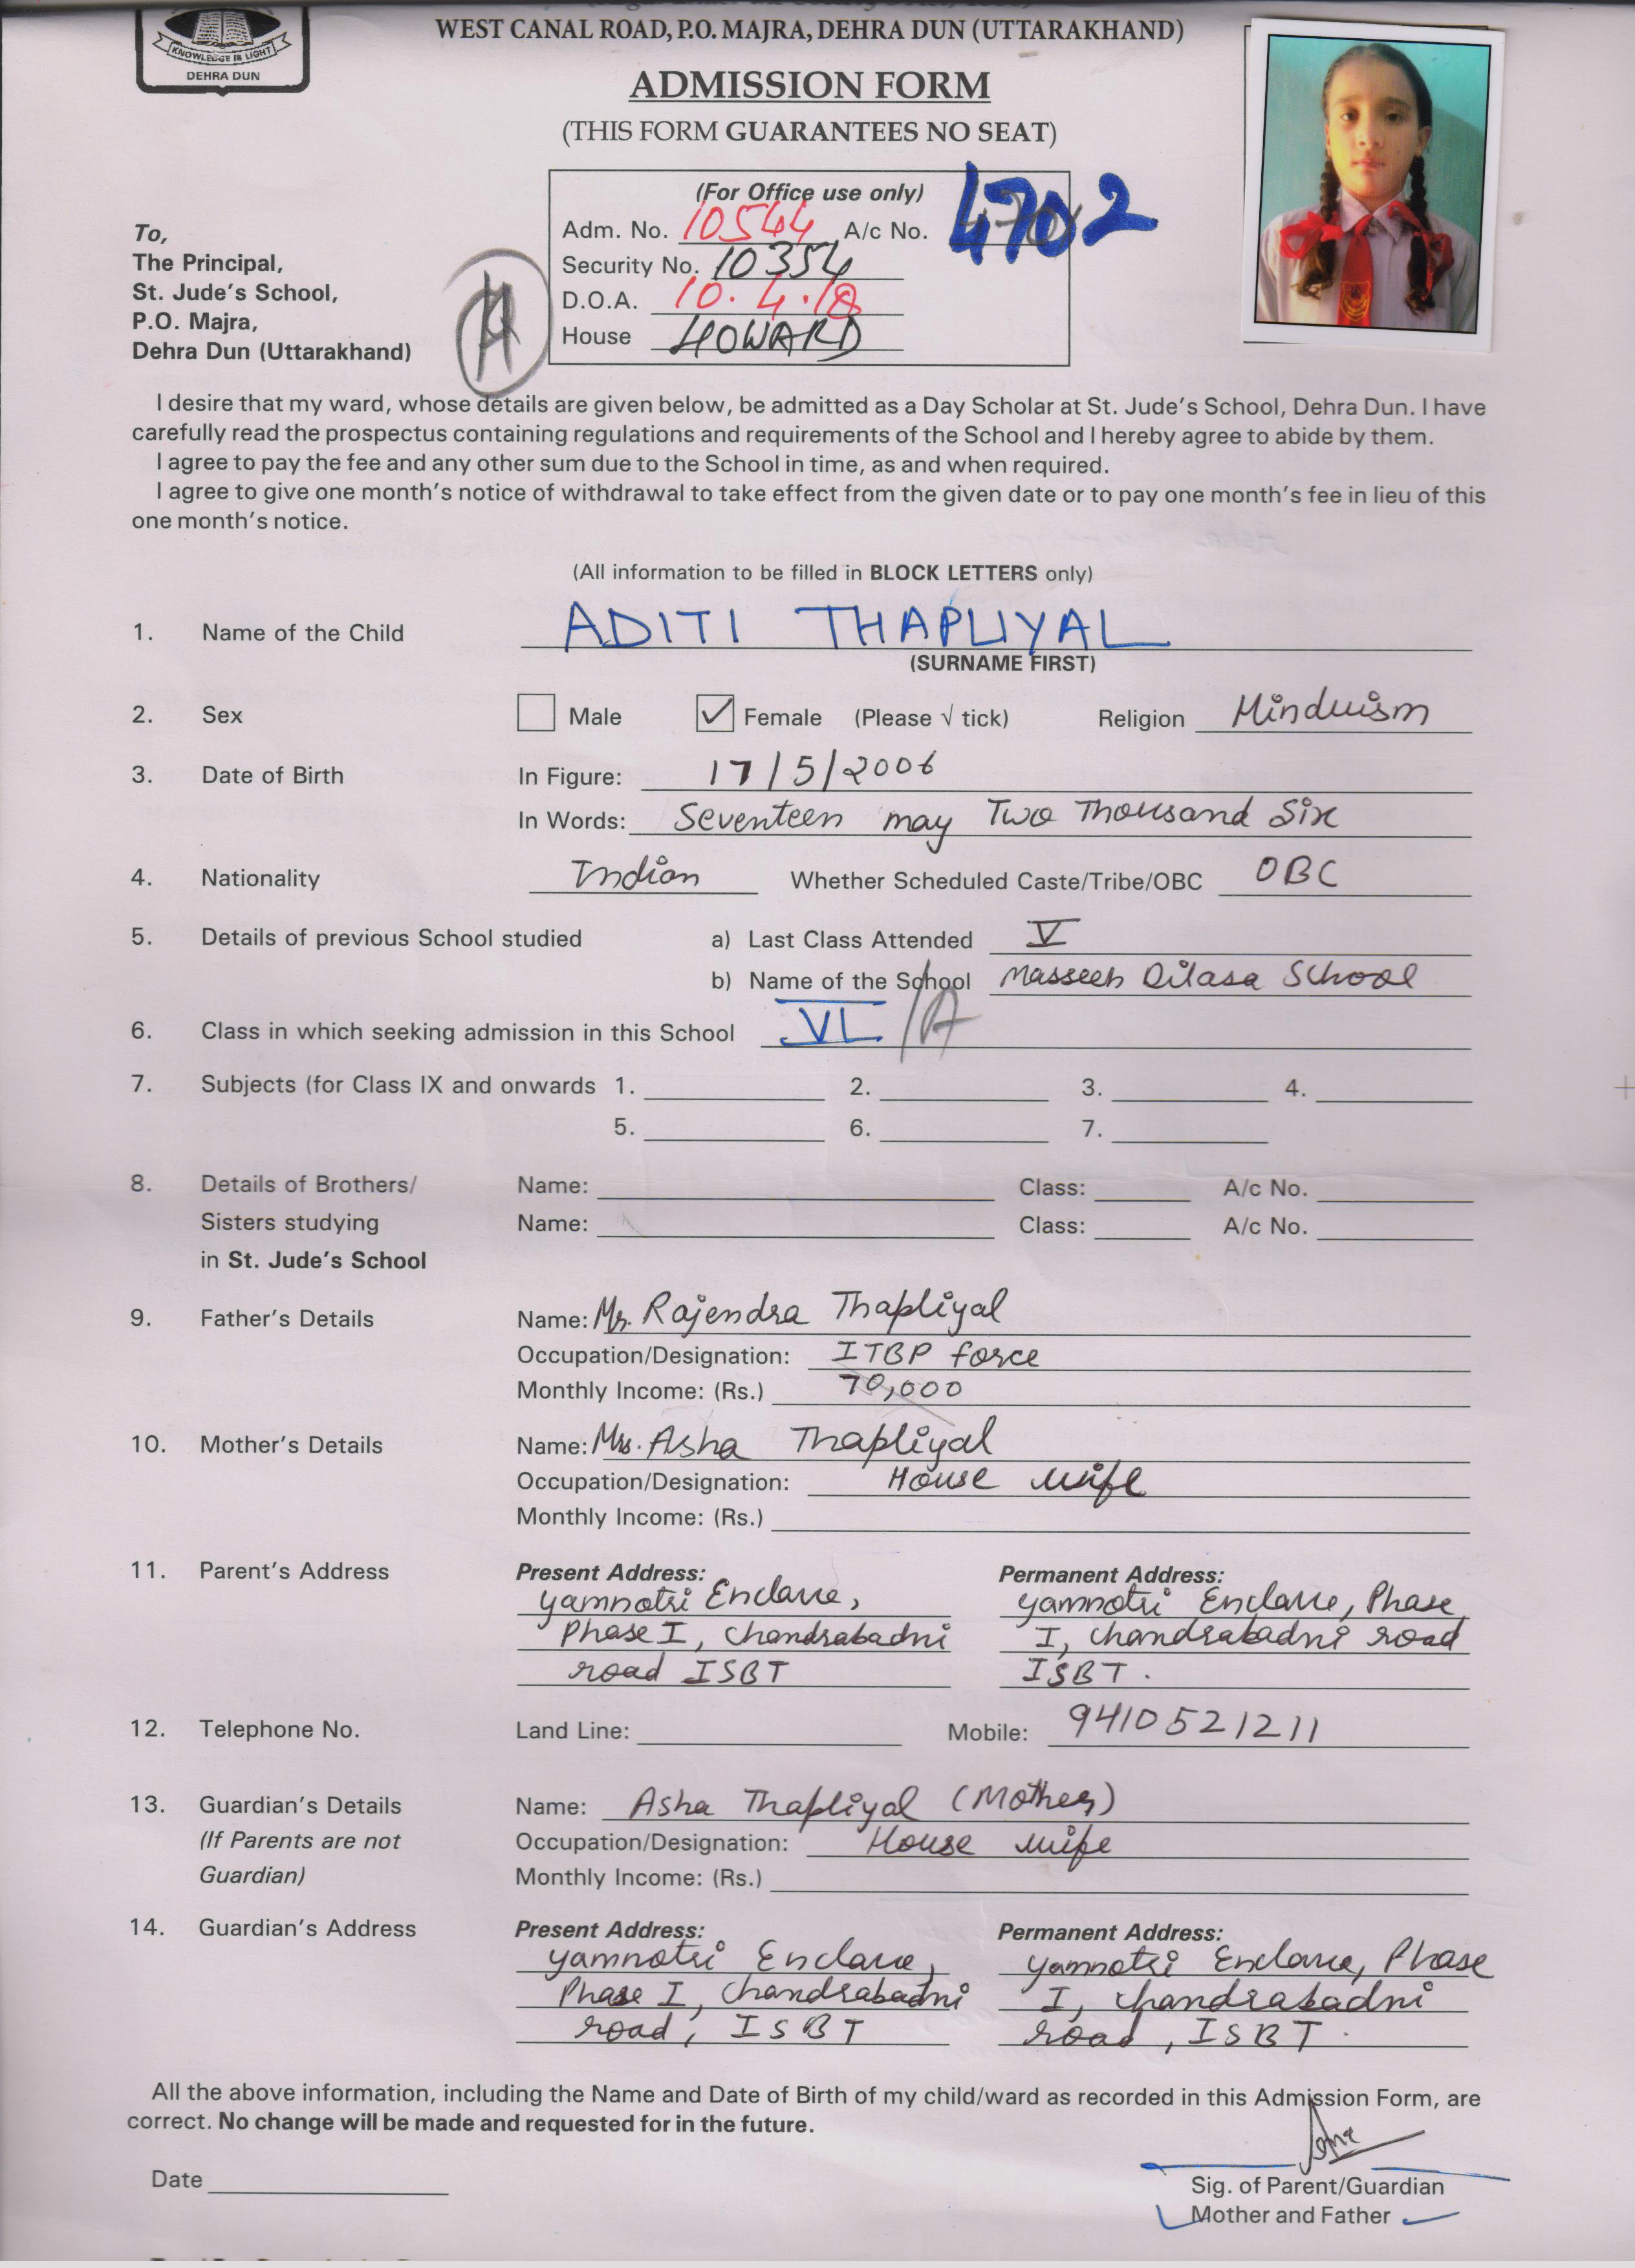 KNOWLEDGE IS LIGHT
DEHRA DUN
WEST CANAL ROAD, P.O. MAJRA, DEHRA DUN (UTTARAKHAND)
ADMISSION FORM
(THIS FORM GUARANTEES NO SEAT)
(For Office use only)
Adm. No. 10544 A/c No. 4702
Security No. 10354
D.O.A. 10.4.18
House HOWARD
To,
The Principal,
St. Jude's School,
P.O. Majra,
Dehra Dun (Uttarakhand)
I desire that my ward, whose details are given below, be admitted as a Day Scholar at St. Jude's School, Dehra Dun. I have
carefully read the prospectus containing regulations and requirements of the School and I hereby agree to abide by them.
I agree to pay the fee and any other sum due to the School in time, as and when required.
I agree to give one month's notice of withdrawal to take effect from the given date or to pay one month's fee in lieu of this
one month's notice.
(All information to be filled in BLOCK LETTERS only)
1. Name of the Child ADITI THAPLIYAL
(SURNAME FIRST)
2. Sex Male ✓ Female (Please √ tick) Religion Hinduism
3. Date of Birth In Figure: 17/5/2006
In Words: Seventeen may Two Thousand Six
4. Nationality Indian Whether Scheduled Caste/Tribe/OBC OBC
5. Details of previous School studied a) Last Class Attended V
b) Name of the School Masseeh Dilasa School
6. Class in which seeking admission in this School VI/A
7. Subjects (for Class IX and onwards 1. 2. 3. 4.
5. 6. 7.
8. Details of Brothers/ Name: Class: A/c No.
Sisters studying Name: Class: A/c No.
in St. Jude's School
9. Father's Details Name: Mr. Rajendra Thapliyal
Occupation/Designation: ITBP force
Monthly Income: (Rs.) 70,000
10. Mother's Details Name: Mrs. Asha Thapliyal
Occupation/Designation: House wife
Monthly Income: (Rs.)
11. Parent's Address Present Address: Permanent Address:
yamnotri Enclave, yamnotri Enclave, Phase
Phase I, chandrabadni I, chandrabadni road
road ISBT ISBT.
12. Telephone No. Land Line: Mobile: 9410521211
13. Guardian's Details Name: Asha Thapliyal (Mother)
(If Parents are not Occupation/Designation: House wife
Guardian) Monthly Income: (Rs.)
14. Guardian's Address Present Address: Permanent Address:
yamnotri Enclave, yamnotri Enclave, Phase
Phase I, chandrabadni I, chandrabadni
road, ISBT road, ISBT.
All the above information, including the Name and Date of Birth of my child/ward as recorded in this Admission Form, are
correct. No change will be made and requested for in the future.
Date
Sig. of Parent/Guardian
Mother and Father